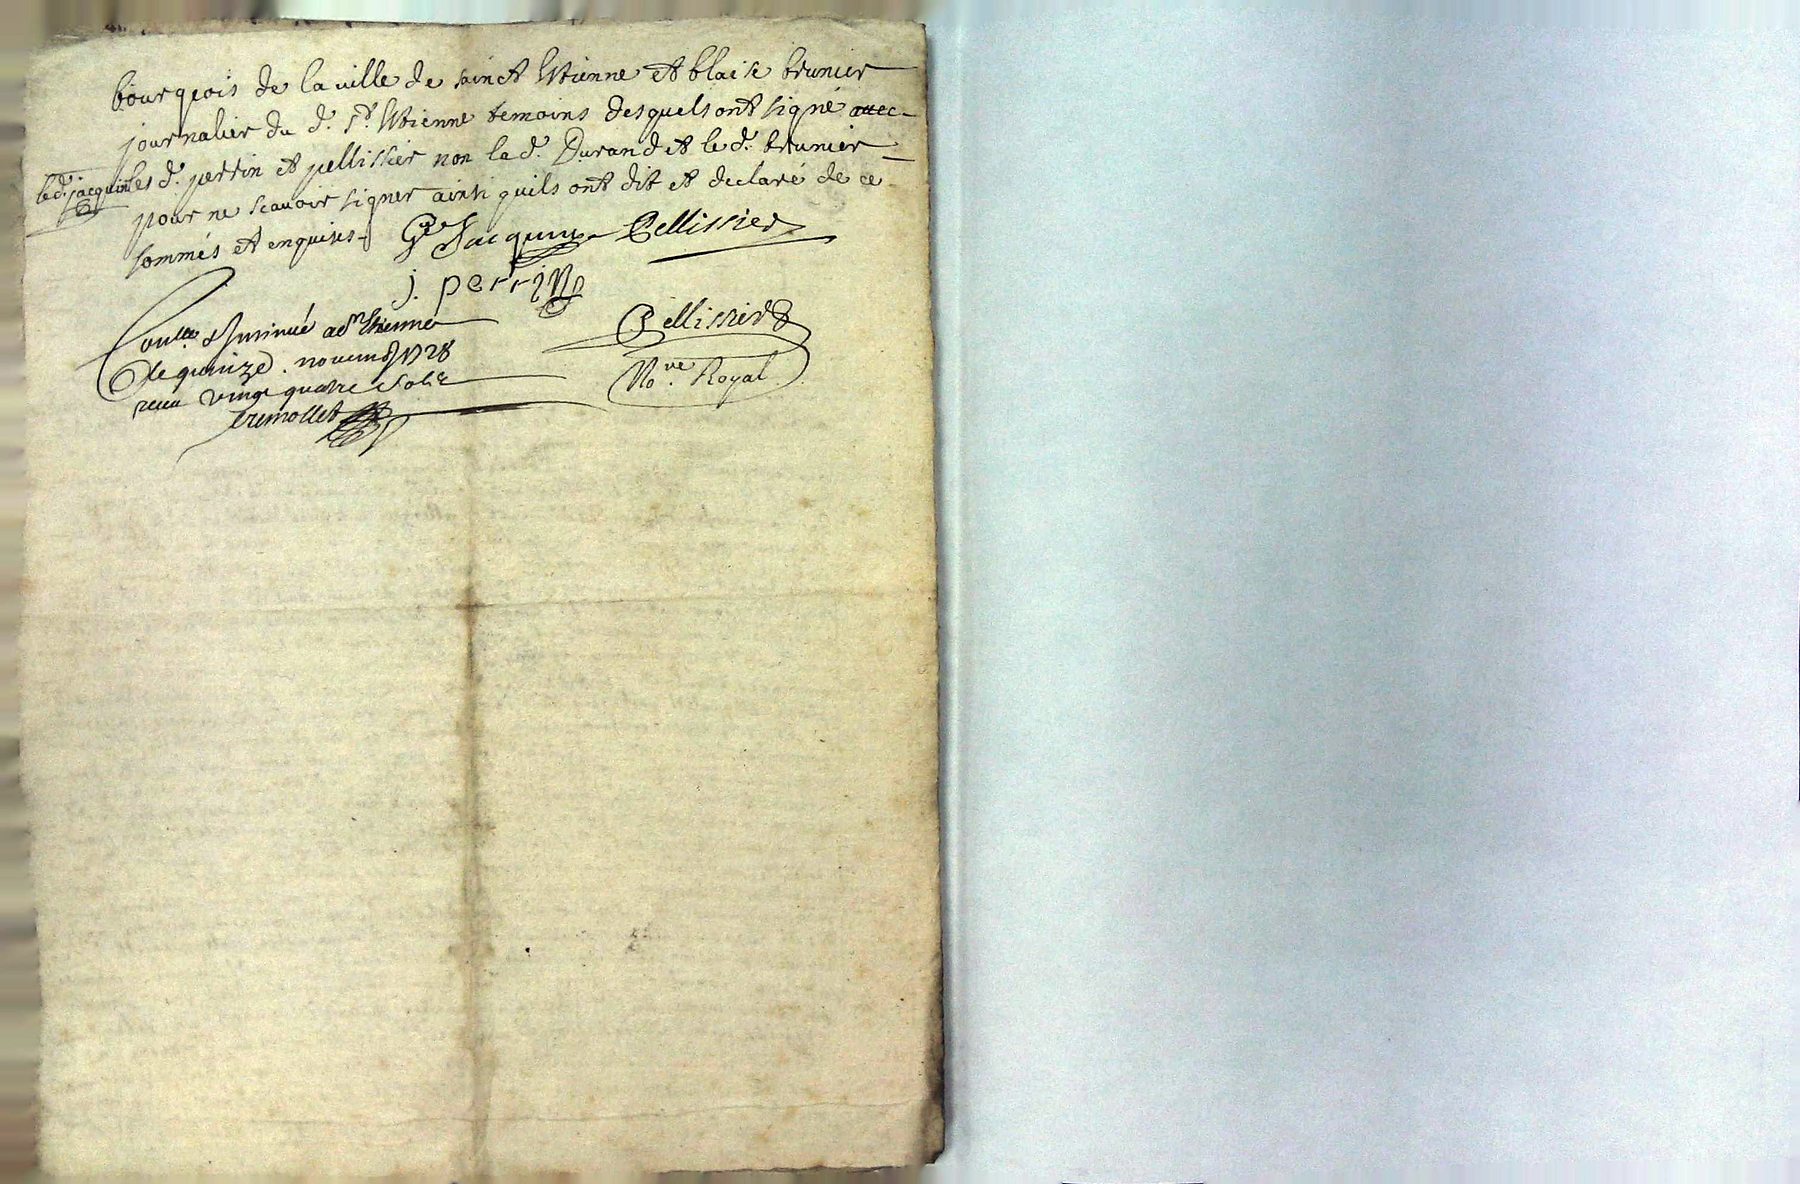 bourgeois de la ville de sainct Etienne et blaise brunier
journalier du d. St. Etienne temoins desquels ont signé avec
led. jacquin
les d. perrin et pellissier non la d. Durand et le d. brunier
pour ne scavoir signer ainsi quils ont dit et declaré de ce
sommés et enquises
Jacquin Pellissier
j. perrin
Pellissier
No.re Royal
Con.lle & Insinué a St Etienne
le quinze novemb 1728
receu vingt quatre sols
tremollet